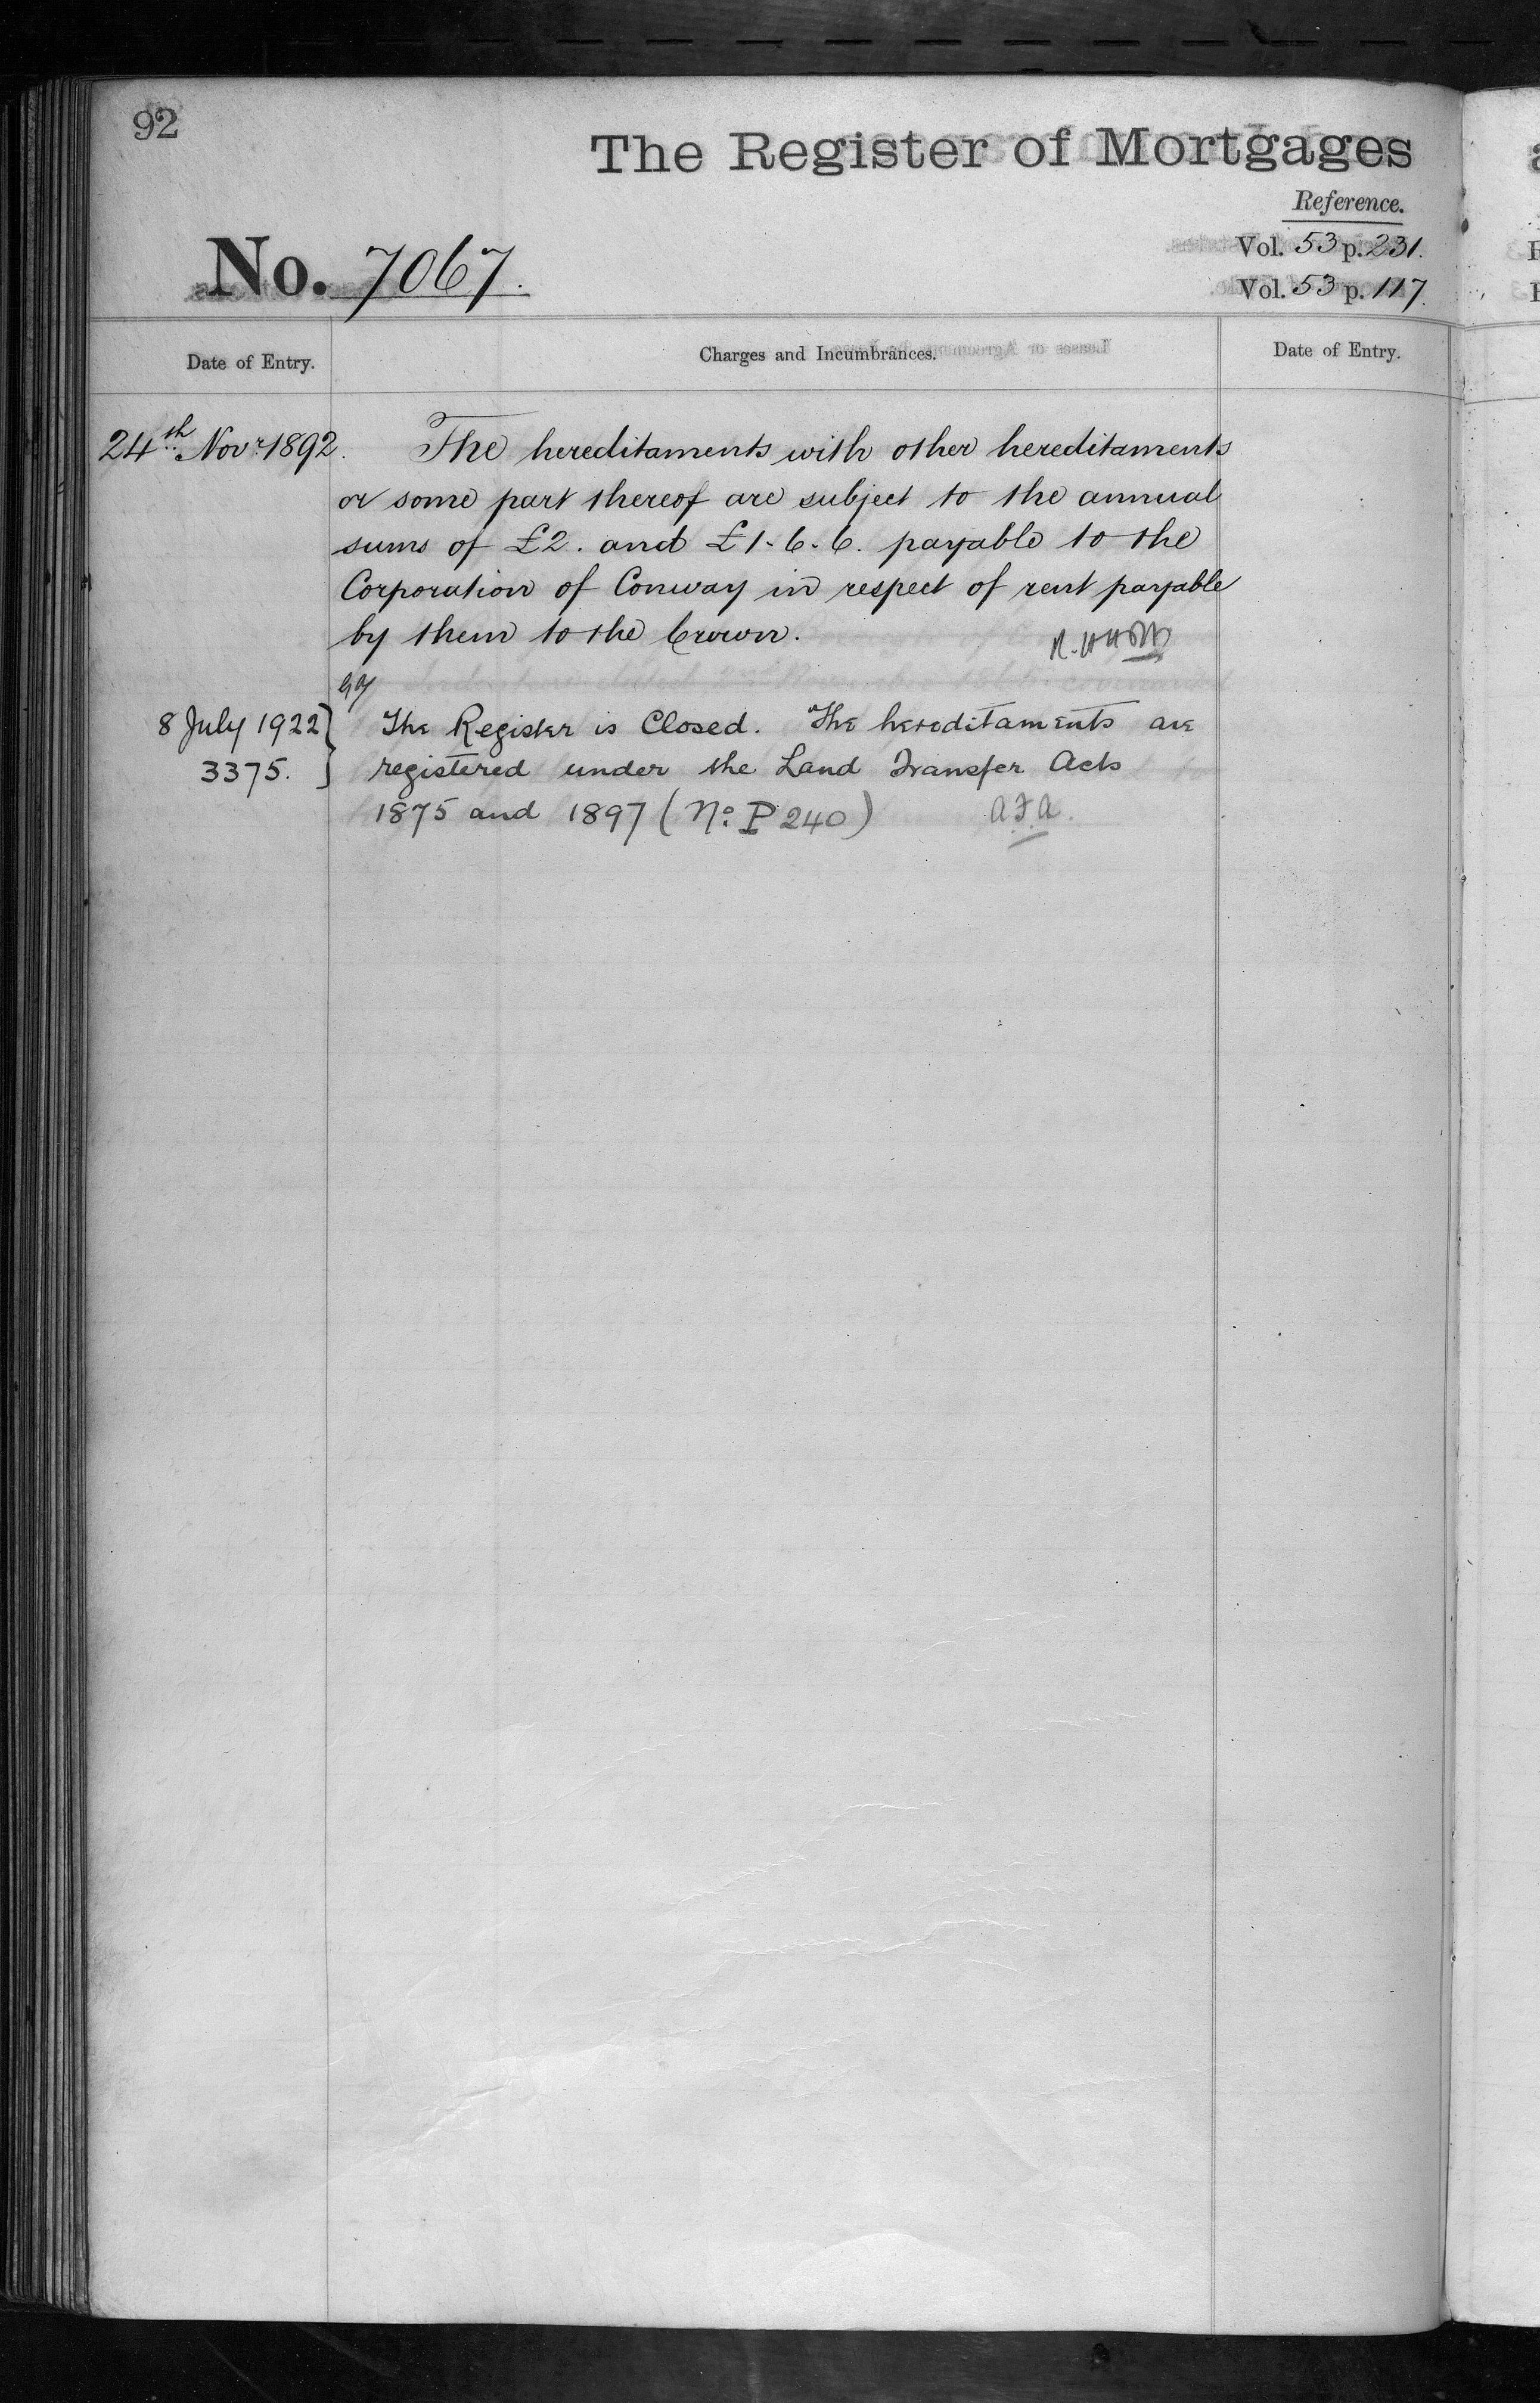 92
The Register of Mortgages
Reference.
No. 7067.
Vol. 53 p. 231.
Vol. 53 p. 117.
Date of Entry.
Charges and Incumbrances.
Date of Entry.
24th Novr 1892. The hereditaments with other hereditaments
or some part thereof are subject to the annual
sums of £2. and £1-6-6. payable to the
Corporation of Conway in respect of rent payable
by them to the Crown.
8 July 1922 } The Register is Closed. The hereditaments are
3375. } registered under the Land Transfer Acts
1875 and 1897 (No. P 240) A.F.A.